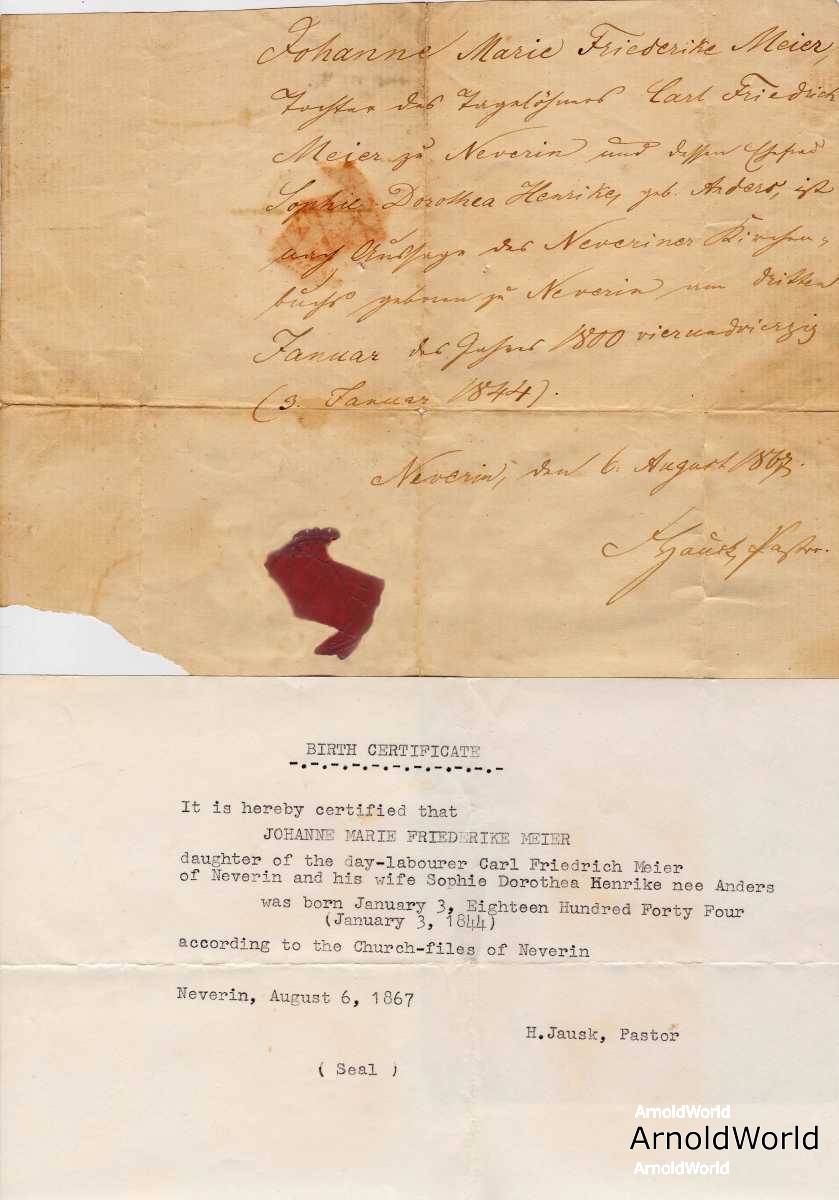 Johanne Marie Friederike Meier,
Tochter des Tagelöhners Carl Friedrich
Meier zu Neverin und dessen Ehefrau
Sophie Dorothea Henrike, geb. Anders, ist
nach Aussage des Neveriner Kirchen-
buchs geboren zu Neverin am dritten
Januar des Jahres 1800 vierundvierzig
(3. Januar 1844).
Neverin, den 6. August 1867.
Pastor.
BIRTH CERTIFICATE
-.-.-.-.-.-.-.-.-.-.-
It is hereby certified that
JOHANNE MARIE FRIEDERIKE MEIER
daughter of the day-labourer Carl Friedrich Meier
of Neverin and his wife Sophie Dorothea Henrike nee Anders
was born January 3, Eighteen Hundred Forty Four
(January 3, 1844)
according to the Church-files of Neverin
Neverin, August 6, 1867
H.Jausk, Pastor
( Seal )
ArnoldWorld
ArnoldWorld
ArnoldWorld